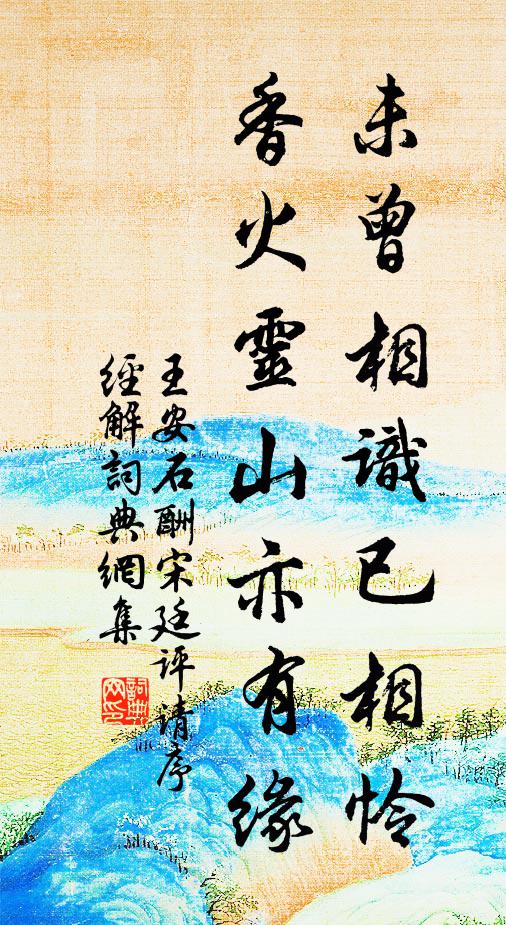 未曾相識已相怜
香火靈山亦有緣
王安石酬宋廷评请序
經解詞典網集
詞典网印